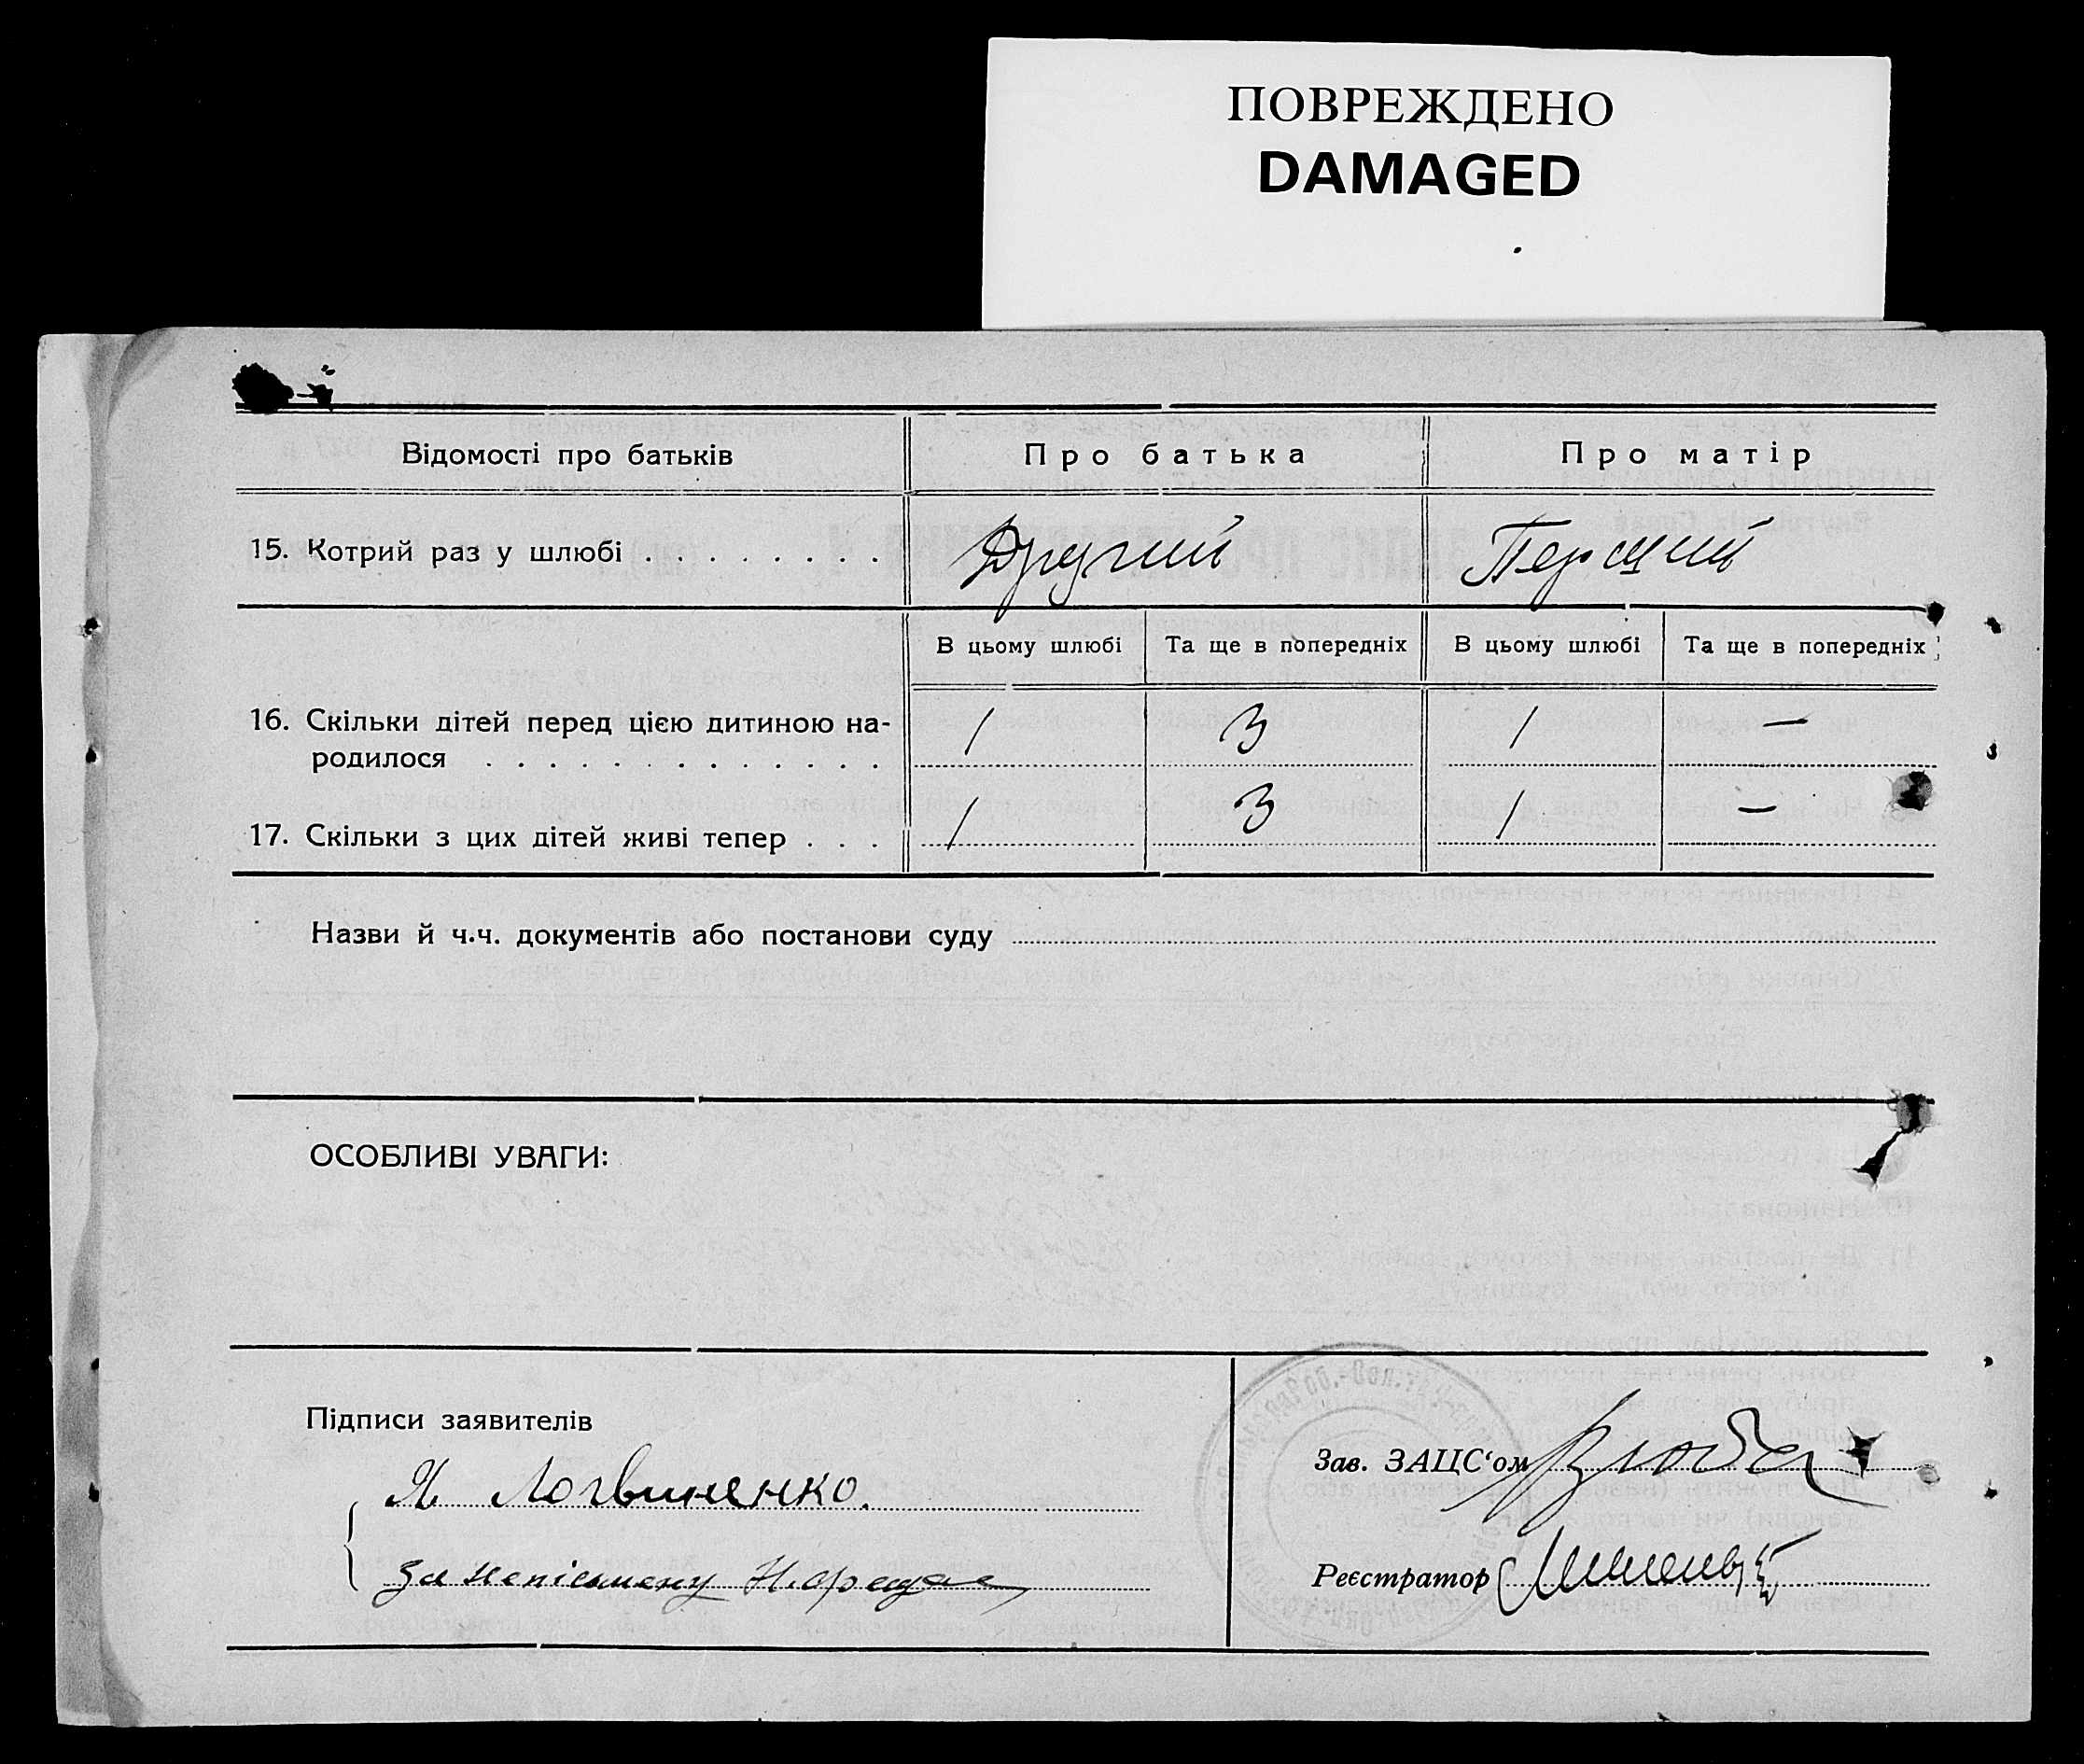 ПОВРЕЖДЕНО
DAMAGED
Відомості про батьків
Про батька
Про матір
15. Котрий раз у шлюбі . . . . . . . .
Другий
Перший
В цьому шлюбі
Та ще в попередніх
В цьому шлюбі
Та ще в попередніх
16. Скільки дітей перед цією дитиною на-
родилося . . . . . . . . . . . . .
1
3
1
—
17. Скільки з цих дітей живі тепер . . .
1
3
1
—
Назви й ч.ч. документів або постанови суду
ОСОБЛИВІ УВАГИ:
Підписи заявителів
Логвиненко.
за неписьмену
Зав. ЗАЦС‘ом
Реєстратор